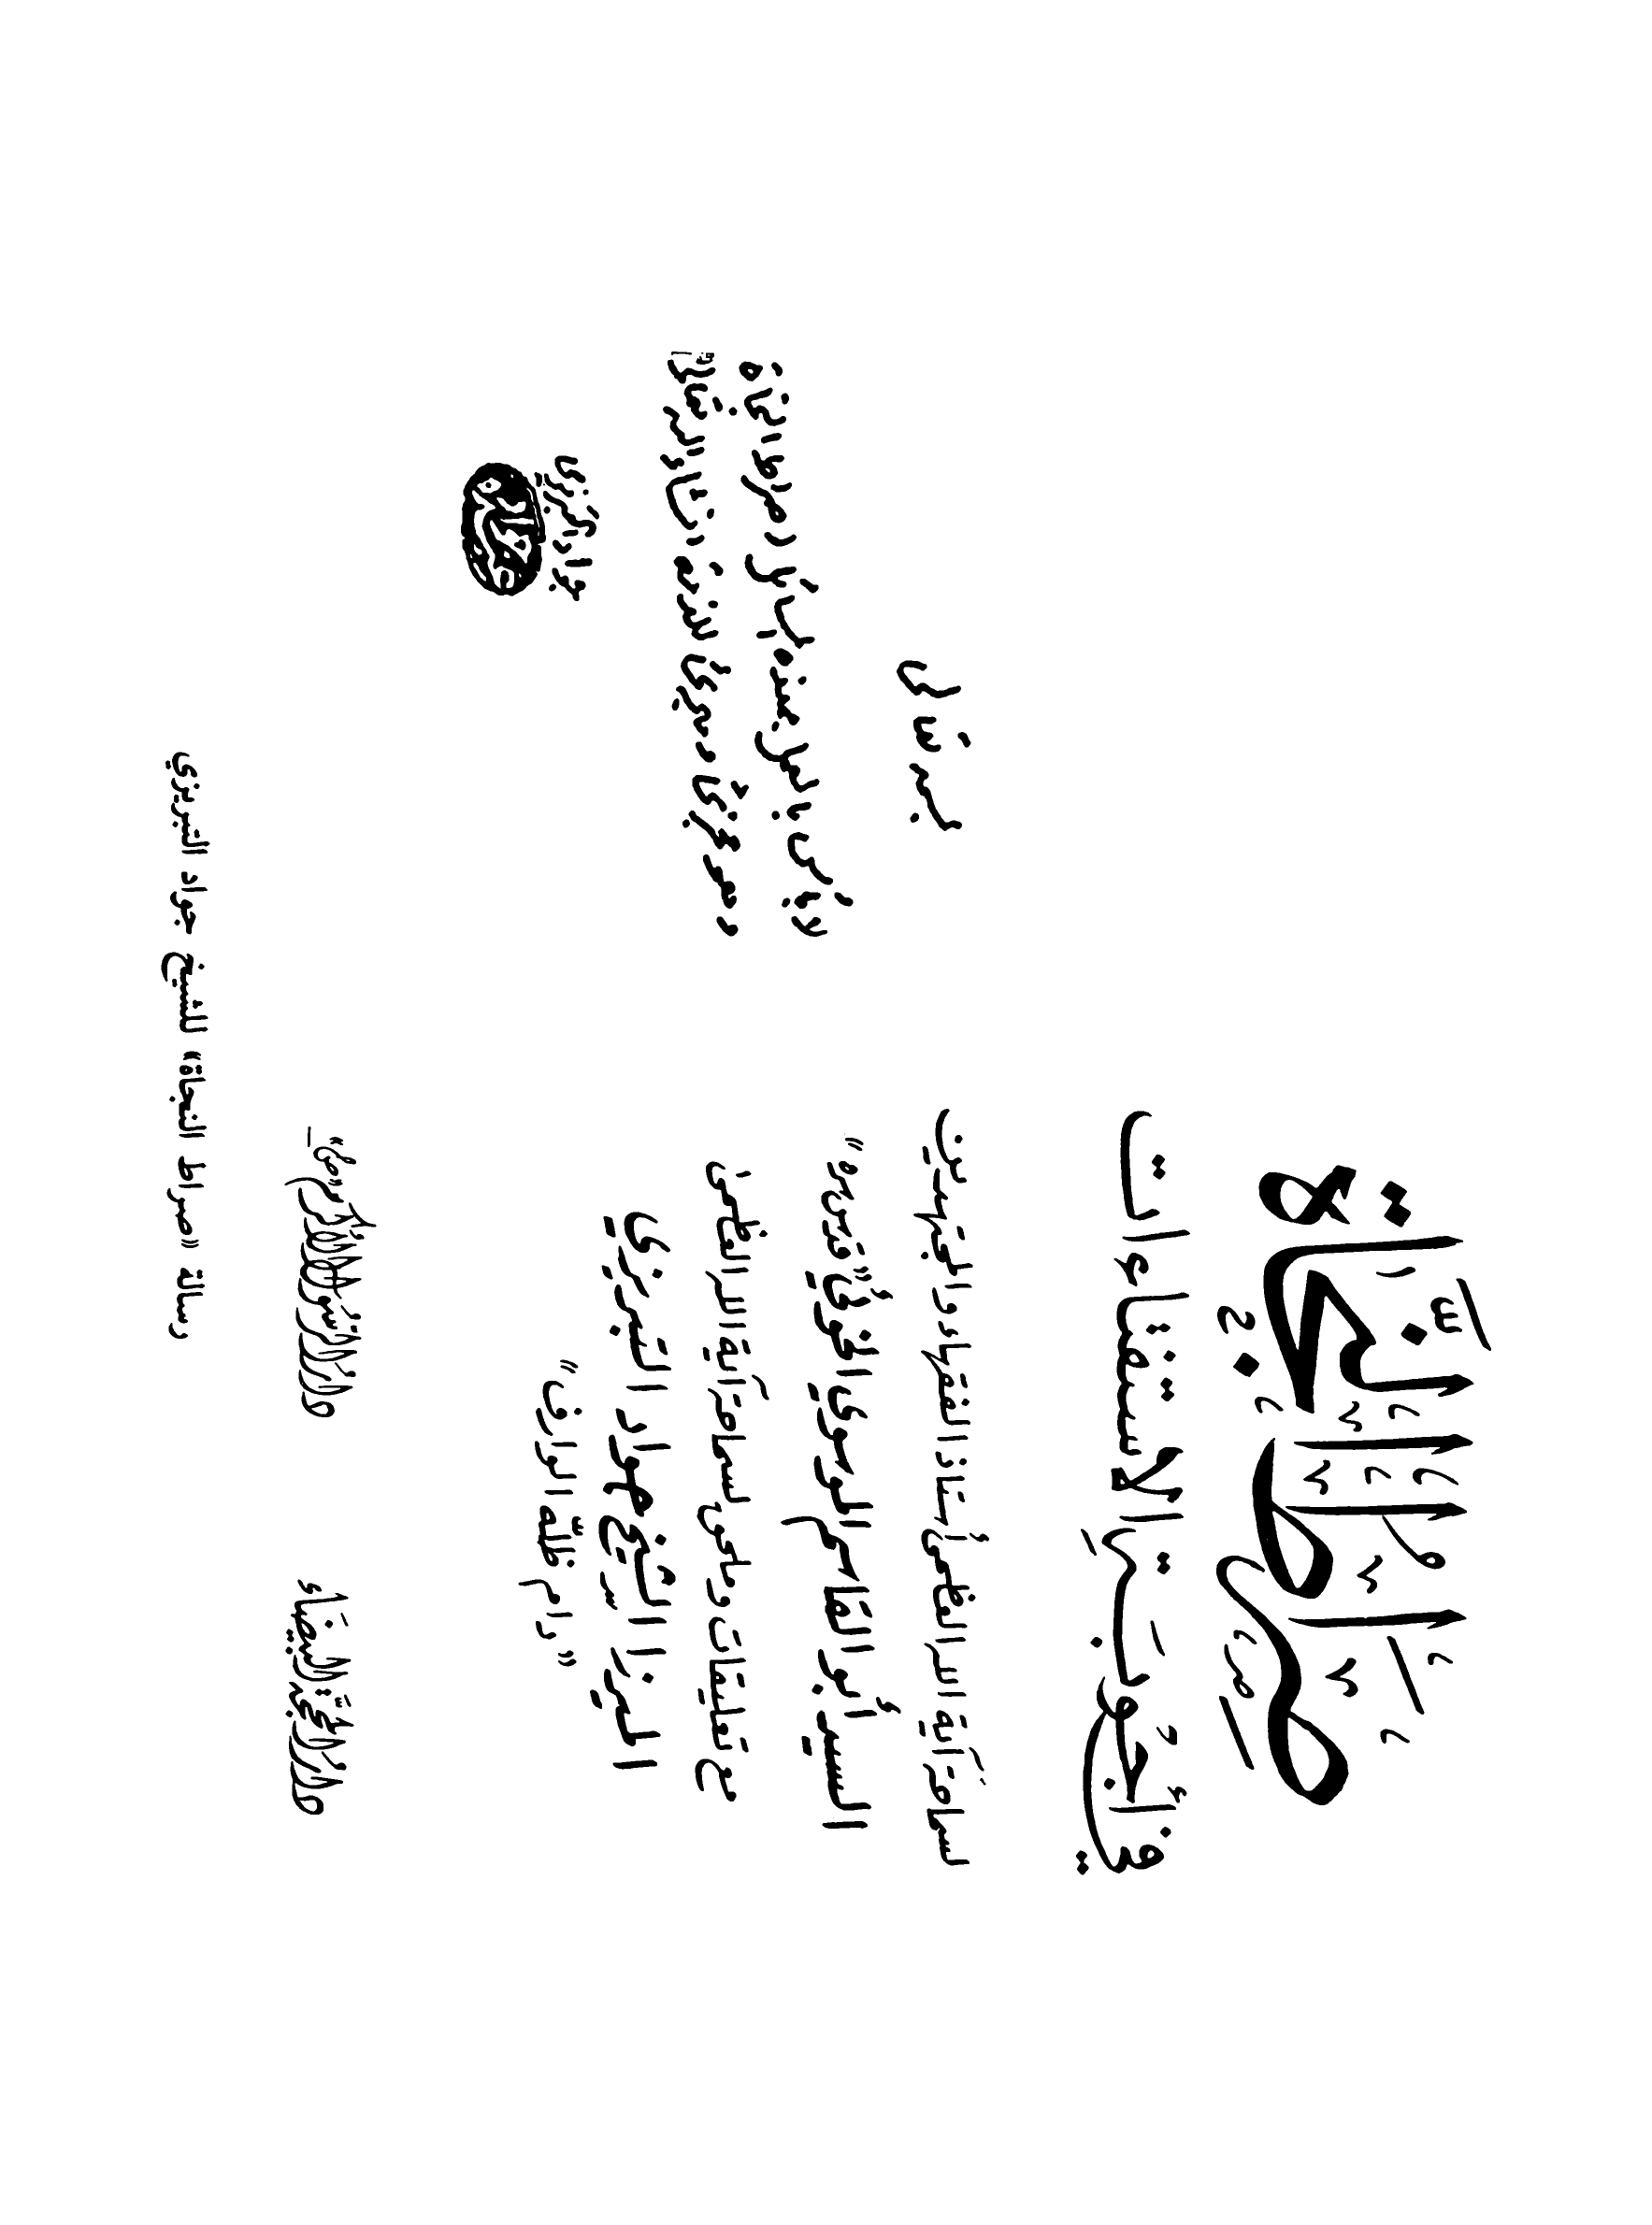 صراط النجاة
في أجوبة الاستفتاءات
لسماحة آية الله العظمى أستاذ الفقهاء والمجتهدين
السيد أبو القاسم الموسوي الخوئي «قدس سره»
مع تعليقات وملحق لسماحة آية الله العظمى
الميرزا الشيخ جواد التبريزي
«دام ظله الوارف»
دار المحجة البيضاء
دار الرسول الأكرم «ص»
بسمه تعالى
لا بأس بالعمل بهذه صراط النجاة
وهو مجزئ ومبرئ للذمة ان شاء الله تعالى
جواد التبريزي
رسالة «صراط النجاة» للشيخ جواد التبريزي